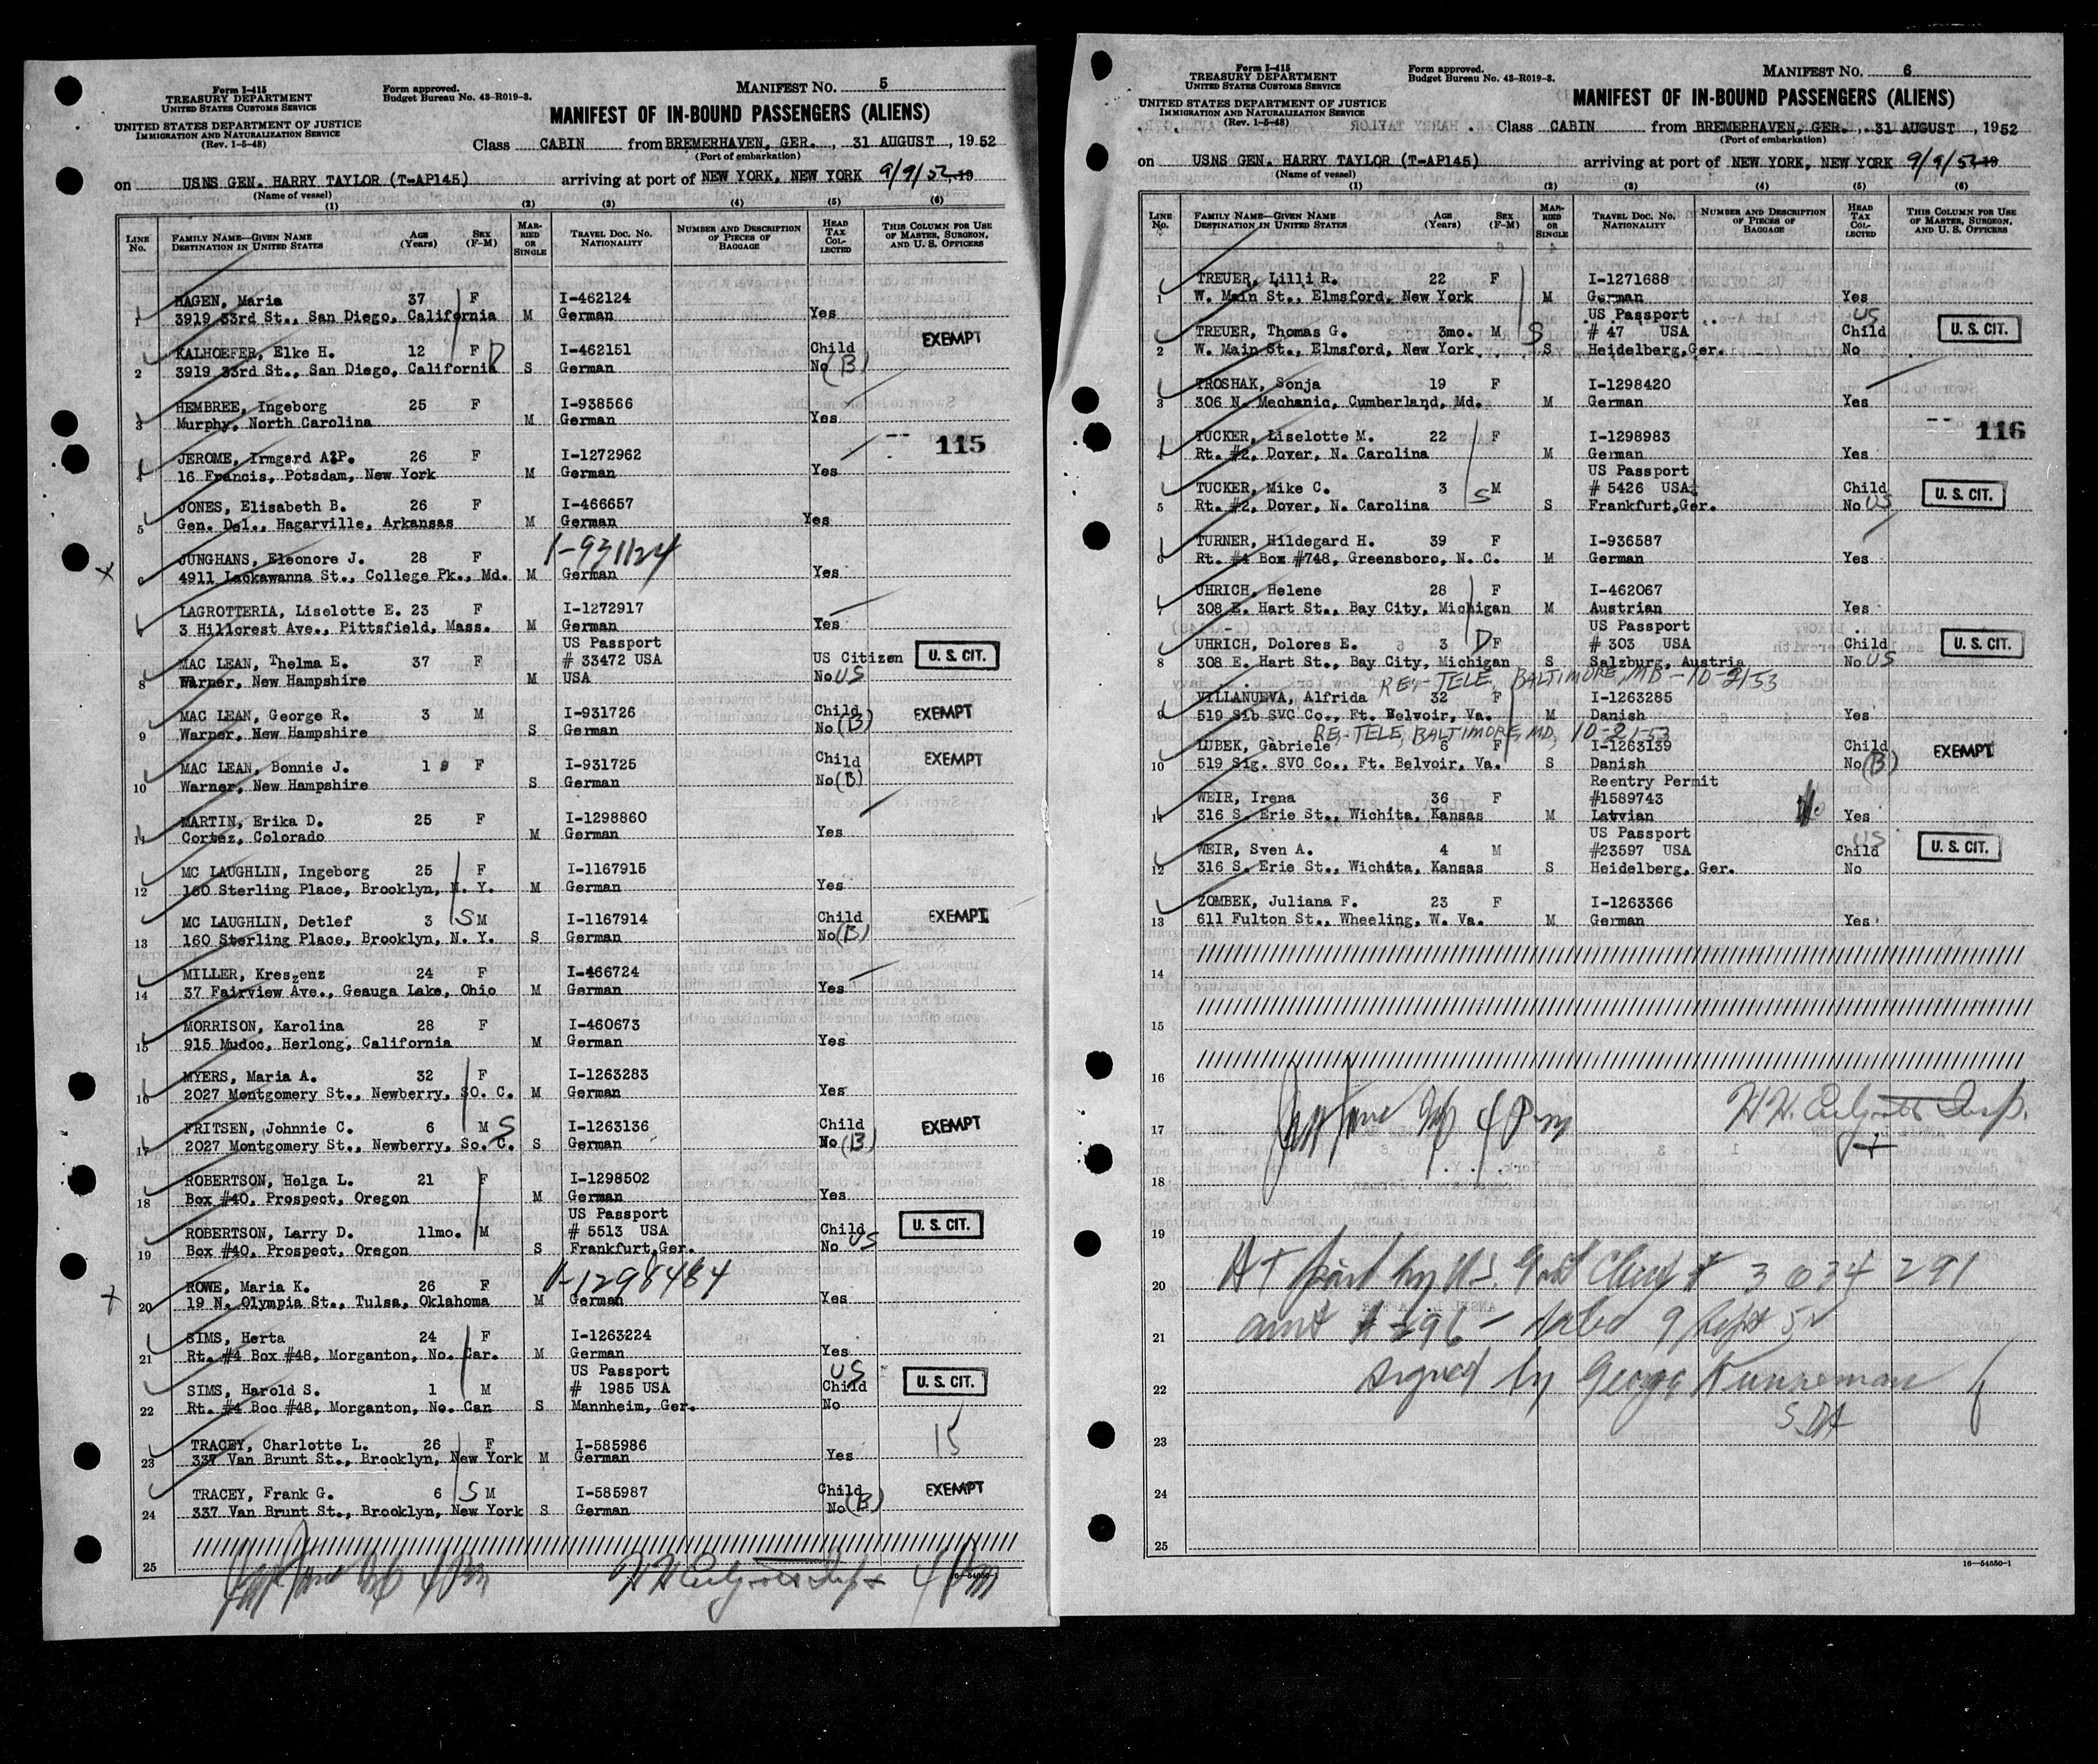 Form I-415
TREASURY DEPARTMENT
UNITED STATES CUSTOMS SERVICE
UNITED STATES DEPARTMENT OF JUSTICE
IMMIGRATION AND NATURALIZATION SERVICE
(Rev. 1-5-48)
Form approved.
Budget Bureau No. 43-R019-3.
MANIFEST No. 5
MANIFEST OF IN-BOUND PASSENGERS (ALIENS)
Class CABIN from BREMERHAVEN, GER., 31 AUGUST, 1952
(Port of embarkation)
on USNS GEN. HARRY TAYLOR (T-AP145) arriving at port of NEW YORK, NEW YORK 9/9/52, 19
(Name of vessel)
(1) (2) (3) (4) (5) (6)
LINE No. FAMILY NAME—GIVEN NAME DESTINATION IN UNITED STATES AGE (Years) SEX (F-M) MARRIED OR SINGLE TRAVEL DOC. No. NATIONALITY NUMBER AND DESCRIPTION OF PIECES OF BAGGAGE HEAD TAX COLLECTED THIS COLUMN FOR USE OF MASTER, SURGEON, AND U. S. OFFICERS
HAGEN, Maria 37 F I-462124
1 3919 33rd St., San Diego, California M German Yes
KALHOEFER, Elke H. 12 F D I-462151 Child EXEMPT
2 3919 33rd St., San Diego, California S German No (B)
HEMBREE, Ingeborg 25 F I-938566
3 Murphy, North Carolina M German Yes
115
JEROME, Irmgard A.P. 26 F I-1272962
4 16 Francis, Potsdam, New York M German Yes
JONES, Elisabeth B. 26 F I-466657
5 Gen. Del., Hagarville, Arkansas M German Yes
JUNGHANS, Eleonore J. 28 F I-931124
x 6 4911 Lackawanna St., College Pk., Md. M German Yes
LAGROTTERIA, Liselotte E. 23 F I-1272917
7 3 Hillcrest Ave., Pittsfield, Mass. M German Yes
US Passport
MAC LEAN, Thelma E. 37 F # 33472 USA US Citizen U. S. CIT.
8 Warner, New Hampshire M USA No US
MAC LEAN, George R. 3 M I-931726 Child EXEMPT
9 Warner, New Hampshire S German No (B)
MAC LEAN, Bonnie J. 1 F I-931725 Child EXEMPT
10 Warner, New Hampshire S German No (B)
MARTIN, Erika D. 25 F I-1298860
11 Cortez, Colorado M German Yes
MC LAUGHLIN, Ingeborg 25 F I-1167915
12 160 Sterling Place, Brooklyn, N. Y. M German Yes
MC LAUGHLIN, Detlef 3 S M I-1167914 Child EXEMPT
13 160 Sterling Place, Brooklyn, N. Y. S German No (B)
MILLER, Kreszenz 24 F I-466724
14 37 Fairview Ave., Geauga Lake, Ohio M German Yes
MORRISON, Karolina 28 F I-460673
15 915 Mudoc, Herlong, California M German Yes
MYERS, Maria A. 32 F I-1263283
16 2027 Montgomery St., Newberry, SO. C. M German Yes
FRITSEN, Johnnie C. 6 M S I-1263136 Child EXEMPT
17 2027 Montgomery St., Newberry, So. C. S German No (B)
ROBERTSON, Helga L. 21 F I-1298502
18 Box #40, Prospect, Oregon M German Yes
US Passport
ROBERTSON, Larry D. 11mo. M # 5513 USA Child U. S. CIT.
19 Box #40, Prospect, Oregon S Frankfurt,Ger. No US
ROWE, Maria K. 26 F I-1298484
+ 20 19 N. Olympia St., Tulsa, Oklahoma M German Yes
SIMS, Herta 24 F I-1263224
21 Rt. #4 Box #48, Morganton, No. Car. M German Yes
US Passport US
SIMS, Harold S. 1 M # 1985 USA Child U. S. CIT.
22 Rt. #4 Boc #48, Morganton, No. Car S Mannheim, Ger. No
TRACEY, Charlotte L. 26 F I-585986 15
23 337 Van Brunt St., Brooklyn, New York M German Yes
TRACEY, Frank G. 6 S M I-585987 Child EXEMPT
24 337 Van Brunt St., Brooklyn, New York S German No (B)
25
16—54650-1
Form I-415
TREASURY DEPARTMENT
UNITED STATES CUSTOMS SERVICE
UNITED STATES DEPARTMENT OF JUSTICE
IMMIGRATION AND NATURALIZATION SERVICE
(Rev. 1-5-48)
Form approved.
Budget Bureau No. 43-R019-3.
MANIFEST No. 6
MANIFEST OF IN-BOUND PASSENGERS (ALIENS)
Class CABIN from BREMERHAVEN, GER., 31 AUGUST, 1952
(Port of embarkation)
on USNS GEN. HARRY TAYLOR (T-AP145) arriving at port of NEW YORK, NEW YORK 9/9/52, 19
(Name of vessel)
(1) (2) (3) (4) (5) (6)
LINE No. FAMILY NAME—GIVEN NAME DESTINATION IN UNITED STATES AGE (Years) SEX (F-M) MARRIED OR SINGLE TRAVEL DOC. No. NATIONALITY NUMBER AND DESCRIPTION OF PIECES OF BAGGAGE HEAD TAX COLLECTED THIS COLUMN FOR USE OF MASTER, SURGEON, AND U. S. OFFICERS
TREUER, Lilli R. 22 F I-1271688
1 W. Main St., Elmsford, New York M German Yes
US Passport US
TREUER, Thomas G. 3mo. M S # 47 USA Child U. S. CIT.
2 W. Main St., Elmsford, New York S Heidelberg,Ger. No
TROSHAK, Sonja 19 F I-1298420
3 306 N. Mechanic, Cumberland, Md. M German Yes
116
TUCKER, Liselotte M. 22 F I-1298983
4 Rt. #2, Dover, N. Carolina M German Yes
US Passport
TUCKER, Mike C. 3 S M # 5426 USA Child U. S. CIT.
5 Rt. #2, Dover, N. Carolina S Frankfurt,Ger. No US
TURNER, Hildegard H. 39 F I-936587
6 Rt. #4 Box #748, Greensboro, N. C. M German Yes
UHRICH, Helene 28 F I-462067
7 308 E. Hart St., Bay City, Michigan M Austrian Yes
US Passport
UHRICH, Dolores E. 3 D F # 303 USA Child U. S. CIT.
8 308 E. Hart St., Bay City, Michigan S Salzburg, Austria No US
RE:- TELE, BALTIMORE, MD - 10-21-53
VILLANUEVA, Alfrida 32 F I-1263285
9 519 Sib SVC Co., Ft. Belvoir, Va. M Danish Yes
RE:- TELE, BALTIMORE, MD, 10-21-53
LUBEK, Gabriele 6 F I-1263139 Child EXEMPT
10 519 Sig. SVC Co., Ft. Belvoir, Va. S Danish No (B)
Reentry Permit
WEIR, Irena 36 F #1589743
11 316 S. Erie St., Wichita, Kansas M Latvian Yes
US Passport US
WEIR, Sven A. 4 M #23597 USA Child U. S. CIT.
12 316 S. Erie St., Wichita, Kansas S Heidelberg, Ger. No
ZOMBEK, Juliana F. 23 F I-1263366
13 611 Fulton St., Wheeling, W. Va. M German Yes
14
15
16
17
18
19
20 HT paid by U.S. Govt Check # 3034291
21 amt # 296 - dated 9 Sept 52
22 signed by George
23
24
25
16—54650-1